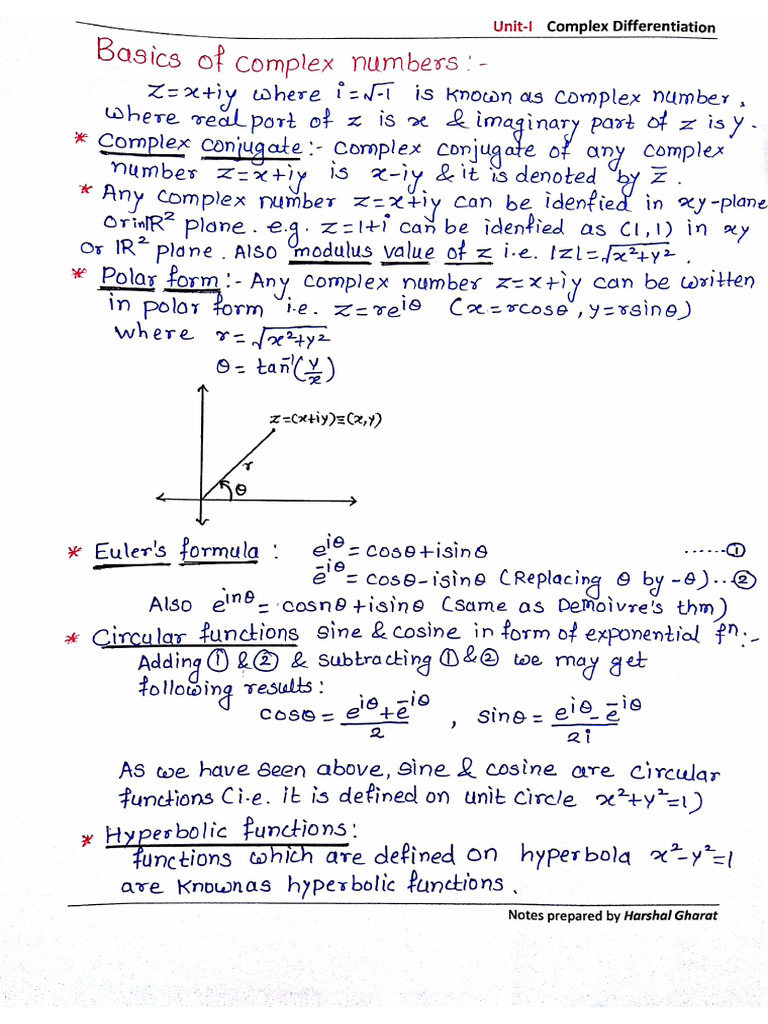 Unit-I Complex Differentiation
Basics of complex numbers:-
z=x+iy where i=√-1 is known as complex number,
where real part of z is x & imaginary part of z is y.
* Complex conjugate:- complex conjugate of any complex
number z=x+iy is x-iy & it is denoted by z̄.
* Any complex number z=x+iy can be idenfied in xy-plane
or in IR² plane. e.g. z=1+i can be idenfied as (1,1) in xy
or IR² plane. Also modulus value of z i.e. |z|=√x²+y².
* Polar form:- Any complex number z=x+iy can be written
in polar form i.e. z=re^iθ (x=rcosθ, y=rsinθ)
where r=√x²+y²
θ = tan⁻¹(y/x)
z=(x+iy)≡(x,y)
r
θ
* Euler's formula: e^iθ = cosθ+isinθ ......①
e^-iθ = cosθ-isinθ (Replacing θ by -θ)...②
Also e^inθ = cosnθ+isinθ (same as Demoivre's thm)
* Circular functions sine & cosine in form of exponential fⁿ:-
Adding ① & ② & subtracting ① & ② we may get
following results:
cosθ = (e^iθ + e^-iθ)/2 , sinθ = (e^iθ - e^-iθ)/2i
As we have seen above, sine & cosine are circular
functions (i.e. it is defined on unit circle x²+y²=1)
* Hyperbolic functions:
functions which are defined on hyperbola x²-y²=1
are known as hyperbolic functions.
Notes prepared by Harshal Gharat